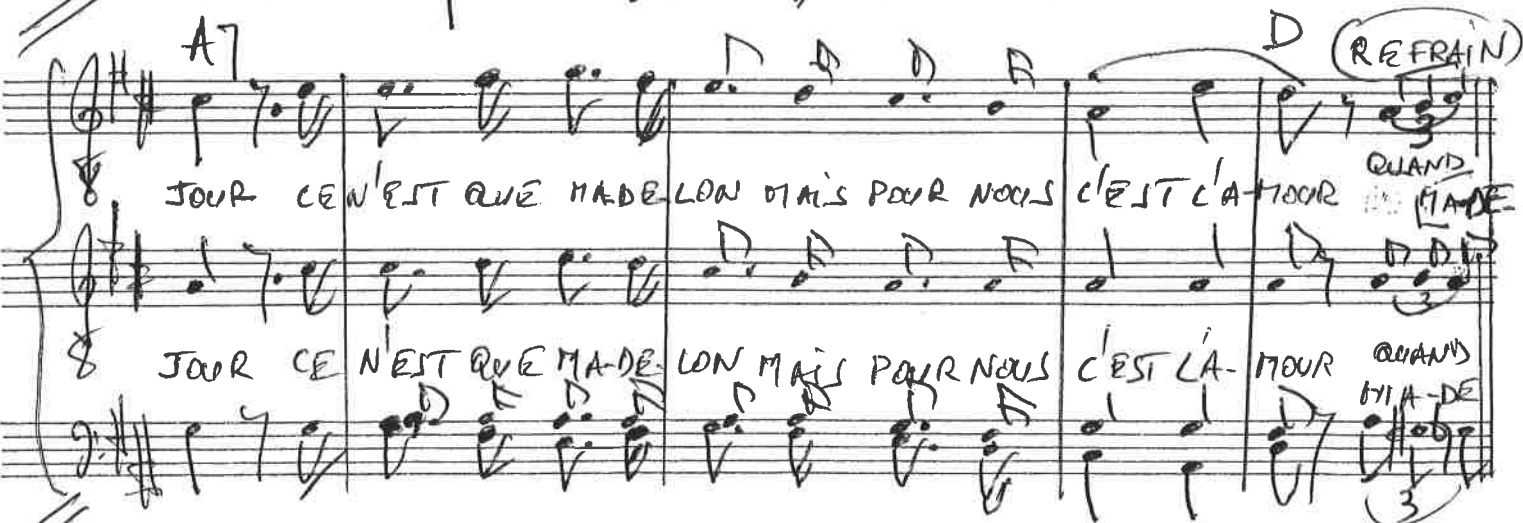 A7 D (REFRAIN)
3
JOUR CE N'EST QUE MADE-LON MAIS POUR NOUS C'EST L'A-MOUR QUAND
MA-DE-
8
3
JOUR CE N'EST QUE MA-DE-LON MAIS POUR NOUS C'EST L'A-MOUR QUAND
MA-DE
8
3